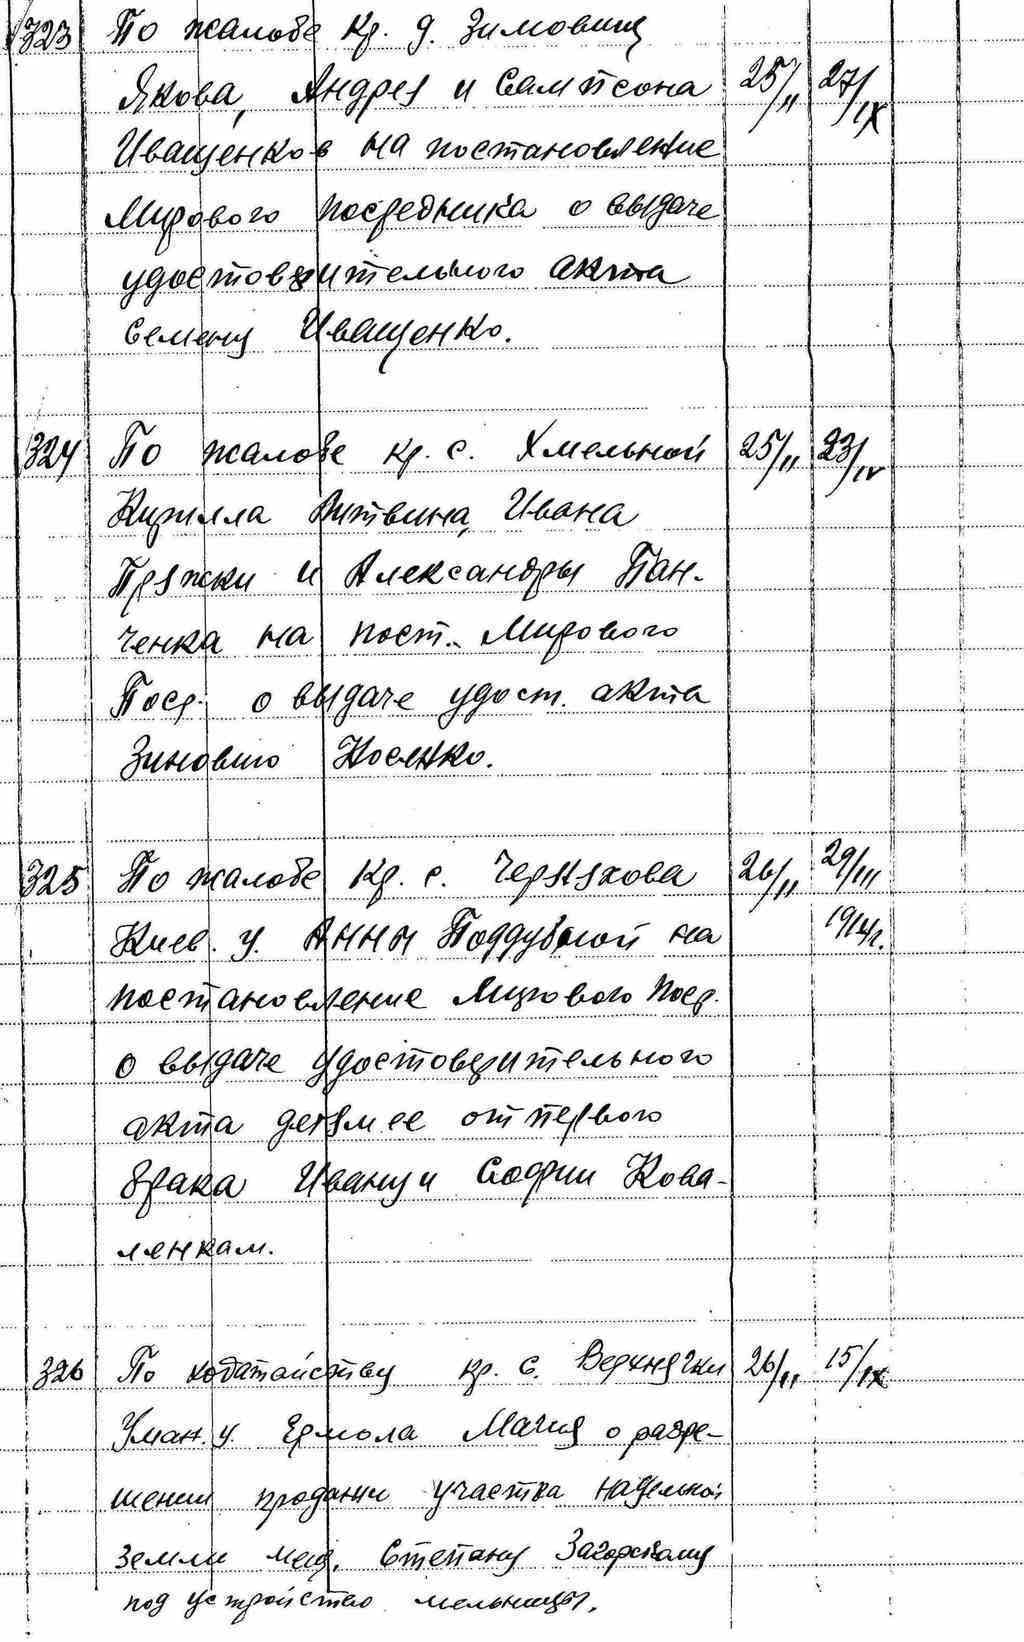 323 По жалобе кр. д. Зимовищ
Якова, Андрея и Сампсона 25/II 27/IX
Иващенков на постановление
Мирового посредника о выдаче
удостоверительного акта
Семену Иващенко.
324 По жалобе кр. с. Хмельной 25/II 23/IV
Кирилла Литвина, Ивана
Пряжки и Александры Пан-
ченка на пост. Мирового
Поср. о выдаче удост. акта
Зиновию Косенко.
325 По жалобе кр. с. Черняхова 26/II 29/III
Киев. у. Анны Поддубной на 1914г.
постановление Мирового Поср.
о выдаче удостоверительного
акта детям ее от первого
брака Ивану и Софии Кова-
ленкам.
326 По ходатайству кр. с. Верхнячки 26/II 15/IX
Уман. у. Ермола Магия о разре-
шении продажи участка надельной
земли мещ. Степану Загорскому
под устройство мельницы.